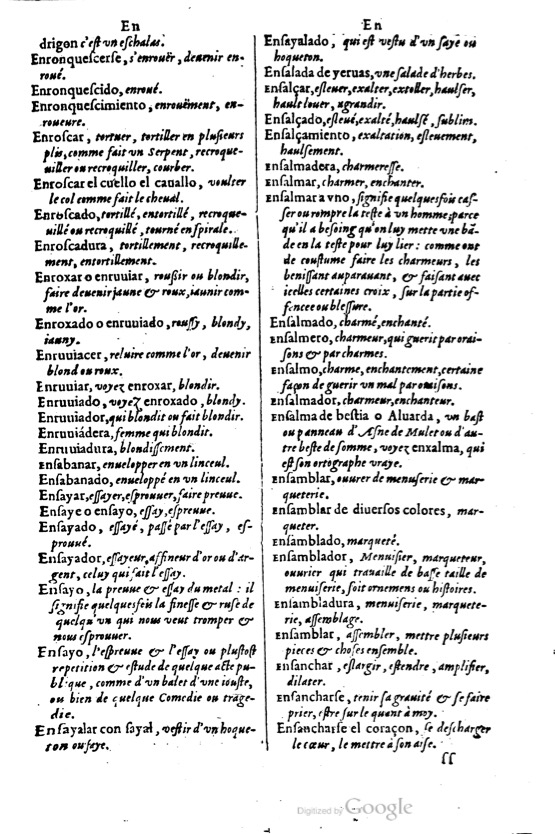 En
drigon c'est vn eschalas.
Enronquescerse, s'enrouër, deuenir en-
roué.
Enronquescido, enroué.
Enronquescimiento, enrouëment, en-
roueure.
Enroscar, tortuer, tortiller en plusieurs
plis, comme fait vn Serpent, recroque-
uiller ou recroquiller, courber.
Enroscar el cuello el cauallo, voulter
le col comme fait le cheual.
Enroscado, tortillé, entortillé, recroque-
uillé ou recroquillé, tourné en spirale.
Enroscadura, tortillement, recroquille-
ment, entortillement.
Enroxar o enruuiar, roussir ou blondir,
faire deuenir jaune & roux, iaunir com-
me l'or.
Enroxado o enruuiado, roussy, blondy,
iauny.
Enruuiacer, reluire comme l'or, deuenir
blond ou roux.
Enruuiar, voyez enroxar, blondir.
Enruuiado, voyez enroxado, blondy.
Enruuiador, qui blondit ou fait blondir.
Enruuiádera, femme qui blondit.
Enruuiadura, blondissement.
Ensabanar, enuelopper en vn linceul.
Ensabanado, enueloppé en vn linceul.
Ensayar, essayer, esprouuer, faire preuue.
Ensaye o ensayo, essay, espreuue.
Ensayado, essayé, passé par l'essay, es-
prouué.
Ensayador, essayeur, affineur d'or ou d'ar-
gent, celuy qui fait l'essay.
Ensayo, la preuue & essay du metal : il
signifie quelquesfois la finesse & ruse de
quelqu'vn qui nous veut tromper &
nous esprouuer.
Ensayo, l'espreuue & l'essay ou plustost
repetition & estude de quelque acte pu-
blique, comme d'vn balet d'vne iouste,
ou bien de quelque Comedie ou trage-
die.
Ensayalar con sayal, vestir d'vn hoque-
ton ou saye.
En
Ensayalado, qui est vestu d'vn saye ou
hoqueton.
Ensalada de yeruas, vne salade d'herbes.
Ensalçar, esleuer, exalter, extoller, haulser,
hault louer, agrandir.
Ensalçado, esleué, exalté, haulsé, sublim.
Ensalçamiento, exaltation, esleuement,
haulsement.
Ensalmadera, charmeresse.
Ensalmar, charmer, enchanter.
Ensalmar a vno, signifie quelquesfois cas-
ser ou rompre la teste à vn homme, parce
qu'il a besoing qu'on luy mette vne bã-
de en la teste pour luy lier : comme ont
de coustume faire les charmeurs, les
benissant auparauant, & faisant auec
icelles certaines croix, sur la partie of-
fencee ou blessure.
Ensalmado, charmé, enchanté.
Ensalmero, charmeur, qui guerit par orai-
sons & par charmes.
Ensalmo, charme, enchantement, certaine
façon de guerir vn mal par oraisons.
Ensalmador, charmeur, enchanteur.
Ensalma de bestia o Aluarda, vn bast
ou panneau d'Asne de Mulet ou d'au-
tre beste de somme, voyez enxalma, qui
est son ortographe vraye.
Ensamblar, ouurer de menuserie & mar-
queterie.
Ensamblar de diuersos colores, mar-
queter.
Ensamblado, marqueté.
Ensamblador, Menuisier, marqueteur,
ouurier qui trauaille de basse taille de
menuiserie, soit ornemens ou histoires.
Ensambladura, menuiserie, marquete-
rie, assemblage.
Ensamblar, assembler, mettre plusieurs
pieces & choses ensemble.
Ensanchar, eslargir, estendre, amplifier,
dilater.
Ensancharse, tenir sa grauité & se faire
prier, estre sur le quant à moy.
Ensancharse el coraçon, se descharger
le cœur, le mettre à son aise.
ſſ
Digitized by Google